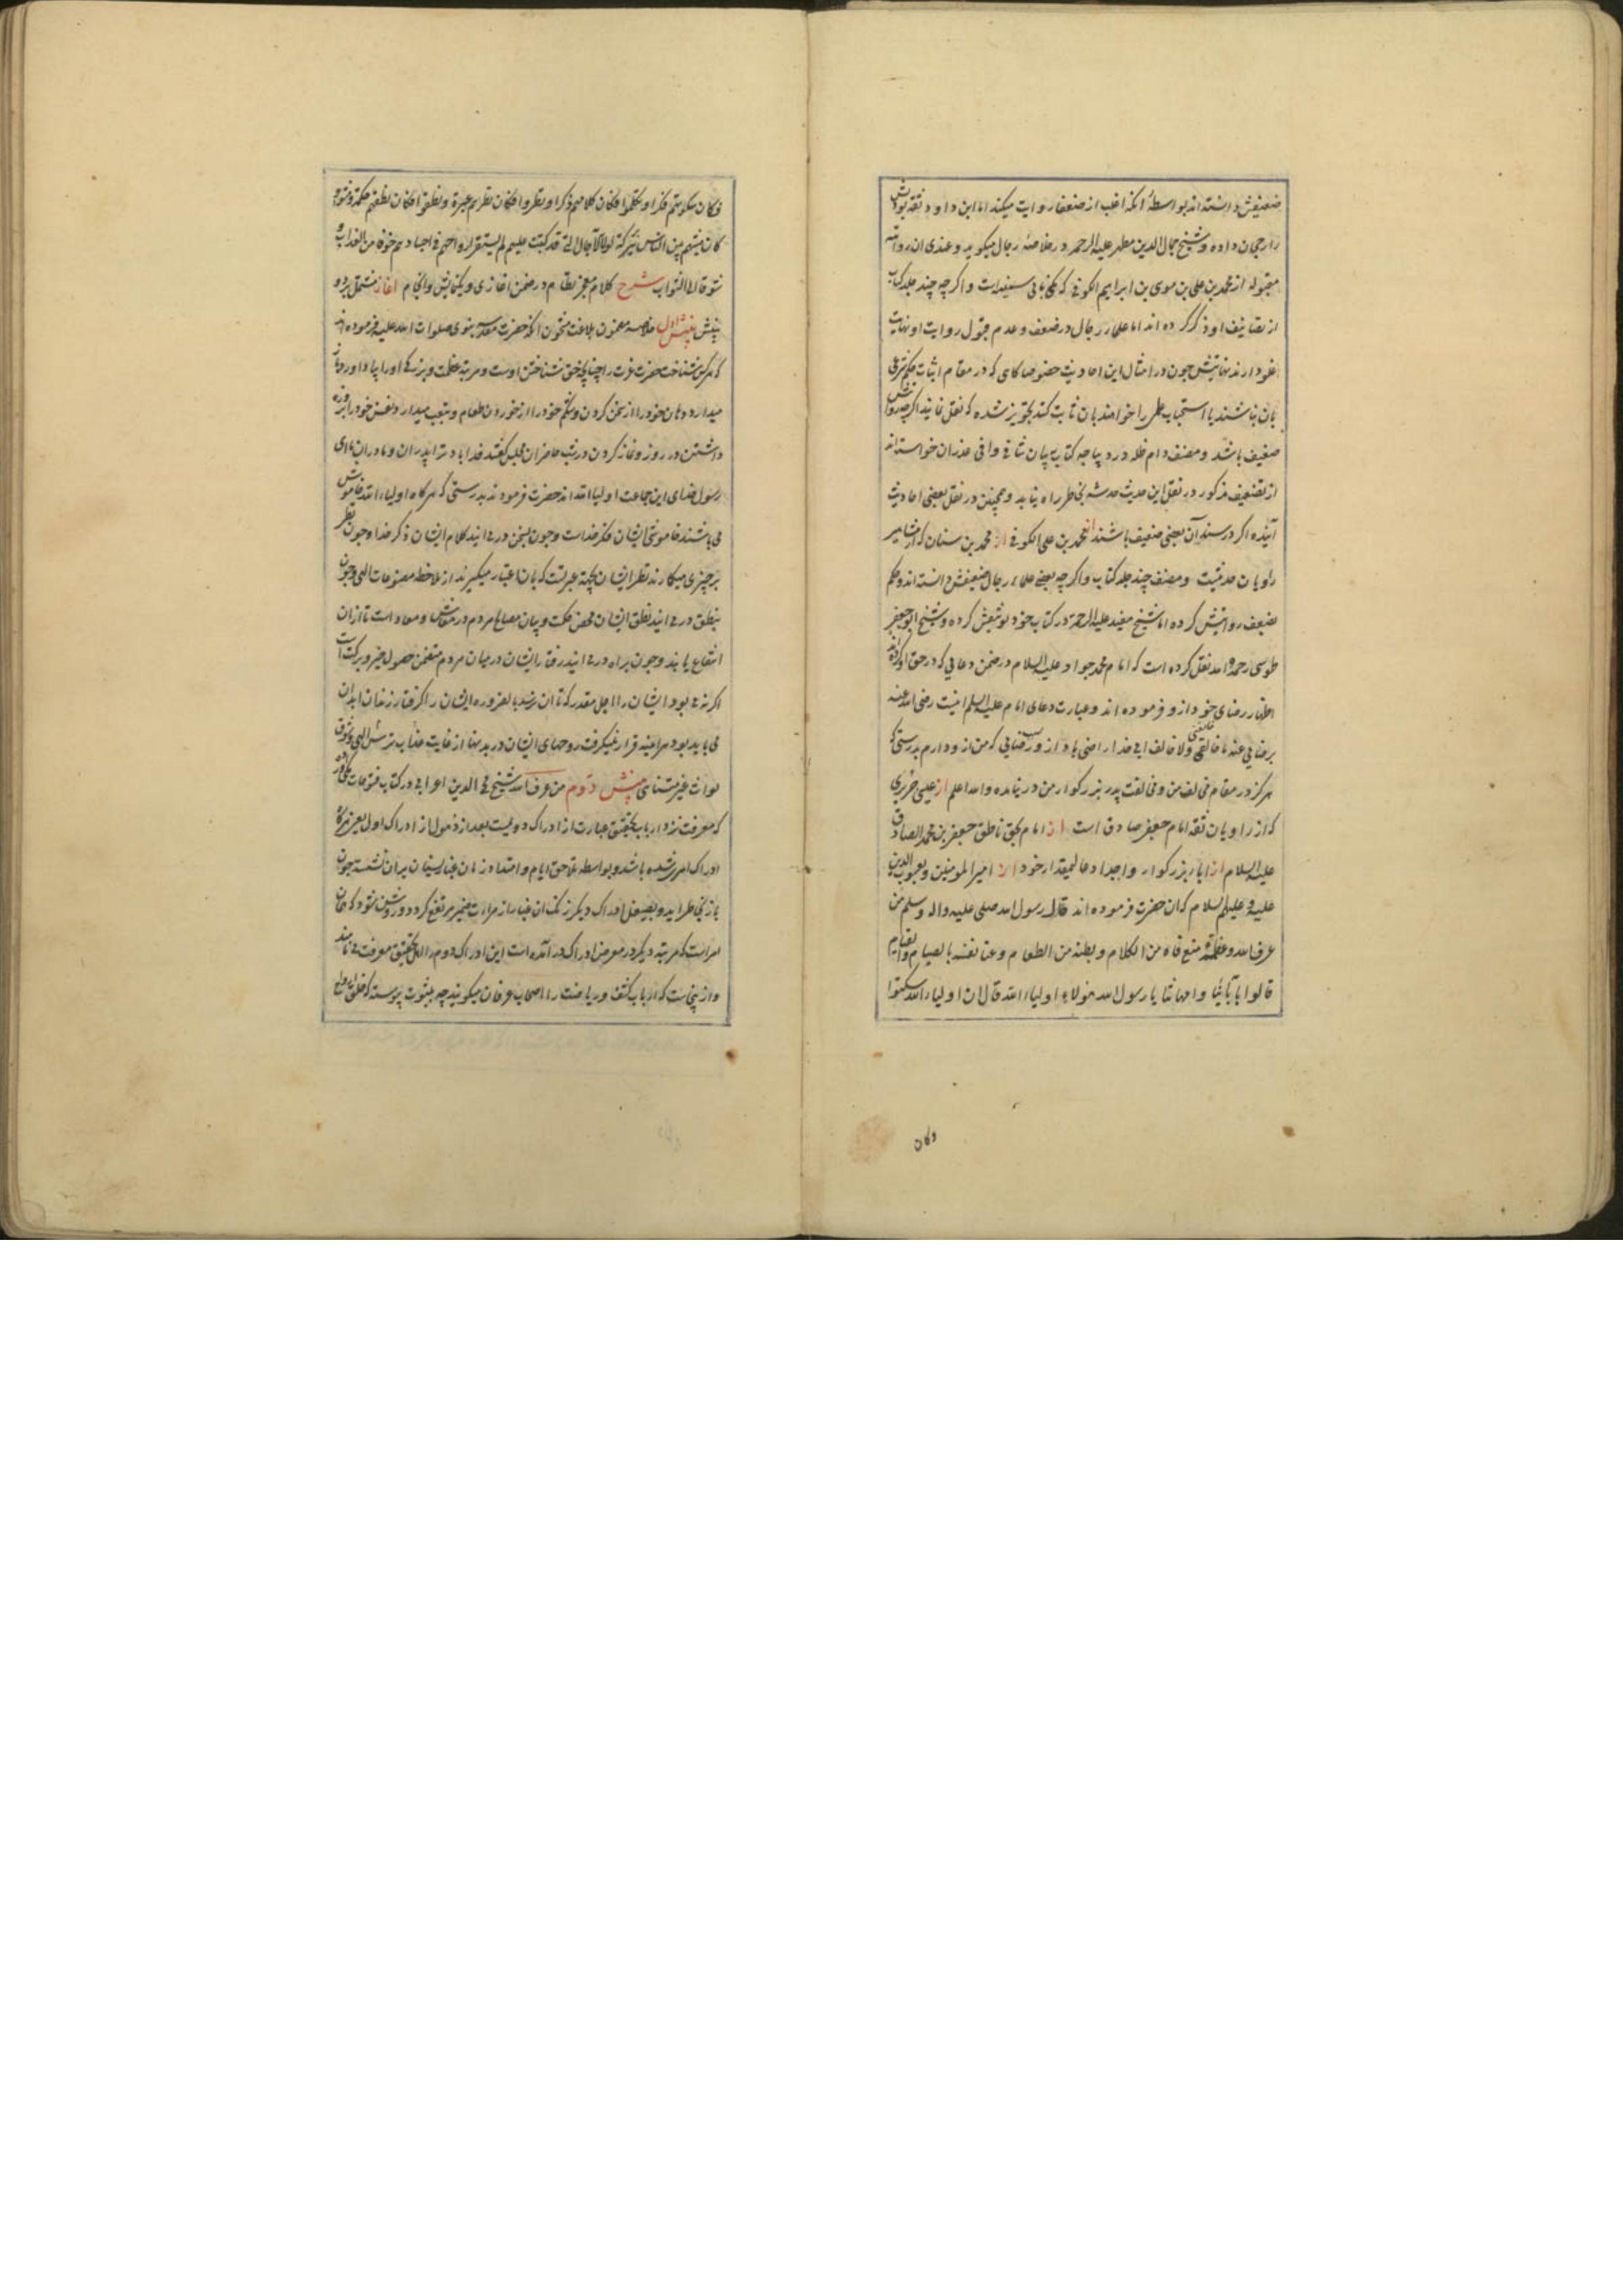 ضعیفش دانسته اند بواسطهٔ آنکه اغلب از ضعفا روایت میکند اما ابن داود ثقه بودنش
را رجحان داده و شیخ جمال الدین مطهر علیه الرحمه در خلاصهٔ رجال میکوید و عندی ان روایته
مقبوله از محمد بن علی بن موسی بن ابراهیم الکوفی که ثانی سندست و اکرچه چند جلد کتاب
از تصانیف او ذکر کرده اند اما علماء رجال در ضعف و عدم قبول روایت او نهایت
غلو دارند نهایتش چون در امثال این احادیث خصوصا کاهی که در مقام اثبات حکم شرعی
بان نباشند یا استحباب عملی را خواهند بان ثابت کنند تجویز شده که نقل نمایند اکرچه
ضعیف باشد و مصنف دام ظله در دیباجه کتاب بیان شافی وافی عذر ان خواسته اند
از تضعیف مذکور در نقل این حدیث خدشه بخاطر راه نیابد و همچنین در نقل بعضی احادیث
آینده اکر در سند آن بعضی ضعیف باشند از محمد بن علی الکوفی از محمد بن سنان که از مشاهیر
راویان حدیثست و مصنف چند جلد کتاب و اکرچه بعضی علماء رجال ضعیفش دانسته اند و حکم
بضعف روایتش کرده اما شیخ مفید علیه الرحمة در کتاب خود توثیقش کرده و شیخ ابو جعفر
طوسی رحمه الله نقل کرده است که امام محمد جواد علیه السلام در ضمن دعائی که در حق او کرده
اظهار رضای خود ازو فرموده اند و عبارت دعای امام علیه السلام اینست رضی الله عنه
برضایی عنه ما خالفنی ولا خالف ابی خدا راضی باد ازو برضایی که من ازو دارم بدرستی که
هرکز در مقام مخالفت من و مخالفت پدر بزرکوار من در نیامده والله اعلم از عیسی جریری
که از راویان ثقه امام جعفر صادق است از امام بحق ناطق جعفر بن محمد الصادق
علیه السلام از اباء بزرکوار و اجداد عالیمقدار خود از امیر المومنین و یعسوب الدین
علیه و علیهم السلام که ان حضرت فرموده اند قال رسول الله صلی علیه واله وسلم من
عرف الله وعظمه منع فاه من الکلام و بطنه من الطعام وعنا نفسه بالصیام والقیام
قالوا بابائنا وامهاتنا یا رسول الله هؤلاء اولیاء الله قال ان اولیاء الله سکتوا
فکان سکوتهم فکرا وتکلموا فکان کلامهم ذکرا ونظروا فکان نظرهم عبرة ونطقوا فکان نطقهم حکمة ومشوا
کان مشیهم بین الناس برکة لولا الآجال التی قد کتبت علیهم لم یستقر ارواحهم فی اجسادهم خوفا من العذاب و
شوقا الی الثواب شرح کلام معجز نظام در ضمن اغازی و بینشی وانجام اغاز مشتمل بر دو
بینش بینش اول خلاصه مضمون بلاغت مشحون انکه حضرت مقدسه نبوی صلوات الله علیه فرموده اند
که هرکس شناخت حضرت عزت را چنانچه حق شناختن اوست و مرتبه عظمت و بزرکی اورا بپا داورد باز
میدارد دهان خود را از سخن کردن و شکم خود را از خوردن طعام و بتعب میدارد نفس خود را بروزه
داشتن در روز و نماز کردن در شب حاضران مجلس کفتند فدا باد ترا پدران و مادران ما ای
رسول خدای این جماعت اولیا الله اند حضرت فرمودند بدرستی که هرکاه اولیاء الله خاموش
می باشند خاموشی ایشان فکر خداست و چون بسخن درمی ایند کلام ایشان ذکر خدا و چون نظر
بر چیزی میکارند نظر ایشان نتیجه عبرتست که بان اعتبار میکیرند از ملاحظه مصنوعات الهی و چون
بنطق درمی ایند نطق ایشان محض حکمت و بیان مصالح مردم در معاش و معاد است تا ازان
انتفاع یابند و چون براه درمی ایند رفتار ایشان در میان مردم متضمن حصول خیر و برکت است
اکر نه می بود ایشان را اجل مقدر که تا ان نرسد بالضروره ایشان را کرفتار زندان ابدان
می باید بود هراینه قرار نمیکرفت روحهای ایشان در بدنها از غایت خوف عذاب الهی وشوق
ثواب غیر متناهی بینش دوم من عرف الله شیخ محی الدین اعرابی در کتاب فتوحات مکی آورده
که معرفت نزد ارباب تحقیق عبارت از ادراک دومیست بعد از ذهول از ادراک اول یعنی هرکاه
ادراک امری شده باشد و بواسطه تلاحق ایام و امتداد زمان غبار نسیان بران نشسته چون
باز بخاطر اید و بصیقل ادراک دیکر زنک ان غبار از مرات ضمیر مرتفع کردد و روشن شود که همان
امر است که مرتبه دیکر در معرض ادراک درآمده است این ادراک دوم را اهل تحقیق معرفت می نامند
و از ینجاست که ارباب کشف و ریاضت را اصحاب عرفان میکویند چه بثبوت پیوسته که خلق ارواح